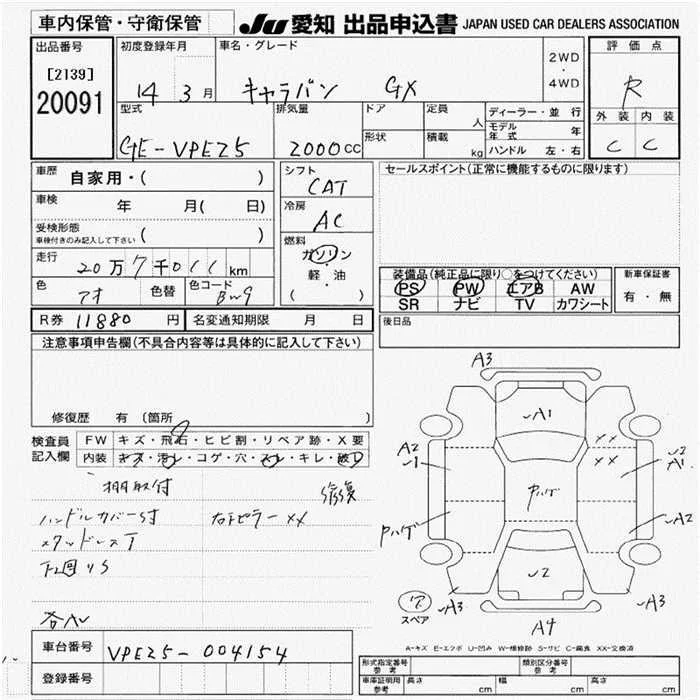 車内保管・守衛保管
JU 愛知 出品申込書 JAPAN USED CAR DEALERS ASSOCIATION
出品番号
[2139]
20091
初度登録年月
14 3 月
車名・グレード
キャラバン GX
2WD
・
4WD
評価点
R
外装 内装
C C
型式
GE-VPE25
排気量
2000 CC
ドア
形状
定員 人
積載 kg
ディーラー・並行
モデル年式 年
ハンドル 左・右
車歴 自家用・( )
車検 年 月( 日)
受検形態
車検付きのみ記入して下さい ( )
走行 20万7千011 km
色 アオ 色替 色コード BW9
シフト
CAT
冷房
AC
燃料
ガソリン
・
軽・油
( )
セールスポイント(正常に機能するものに限ります)
装備品(純正品に限り○をつけてください)
PS PW エアB AW
SR ナビ TV カワシート
新車保証書
有・無
R券 11880 円 名変通知期限 月 日
後日品
注意事項申告欄(不具合内容等は具体的に記入して下さい)
修復歴 有 〔箇所 〕
検査員
記入欄
FW キズ・飛石・ヒビ割・リペア跡・X要
内装 キズ・汚レ・コゲ・穴・スレ・キレ・破レ
棚取付
ハンドルカバーS寸
スタッドレス丁
下回りS
各AU
修復
右ピラーXX
A3
A1
A2
1
XX
XX
A1
Pハゲ
Pハゲ
A2
2
A3
A4
A3
スペア
A-キズ E-エクボ U-凹み W-補修跡 S-サビ C-腐食 XX-交換済
車台番号 VPE25-004154
登録番号
形式指定番号
参考
類別区分番号
参考
車庫証明用
参考
長さ cm 幅 cm 高さ cm